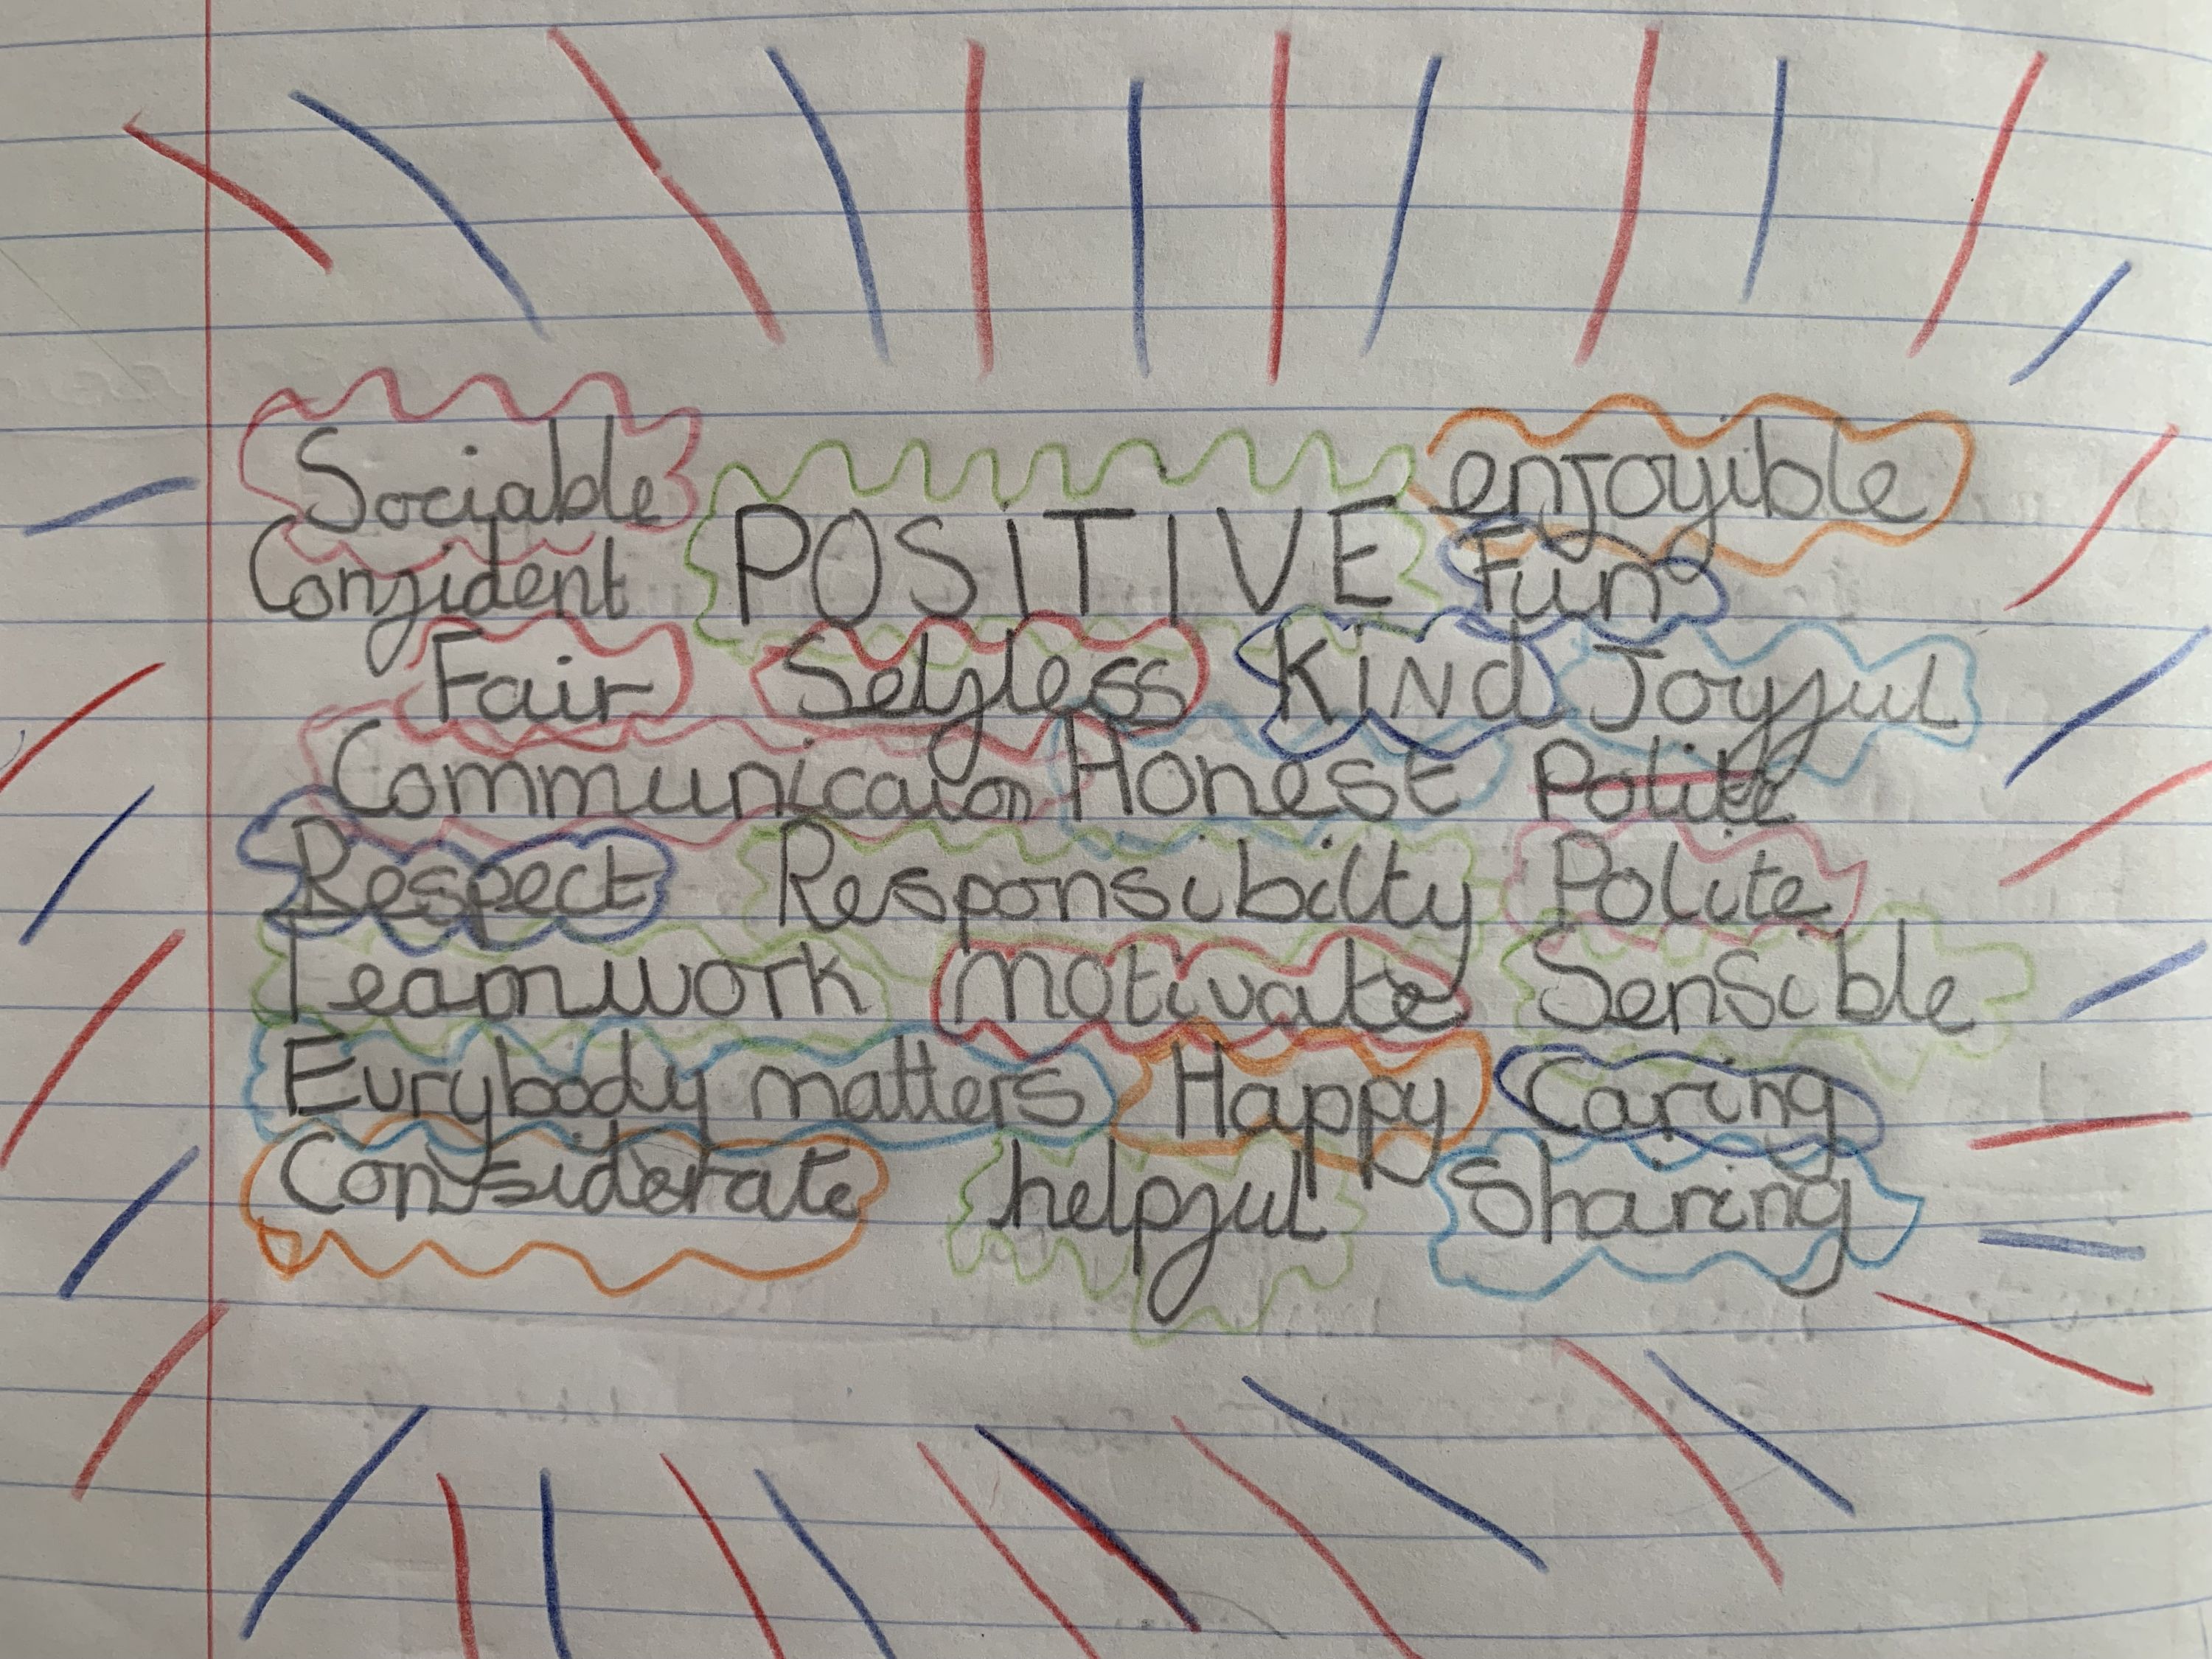 Sociable POSiTIVE enjoyible
Confident Fun
Fair Selfless KiNd Joyful
Communicaion Honest Polite
Respect Responsibilty Polite
Teamwork motivate Sensible
Eurybody matters Happy Caring
Considerate helpful Sharing